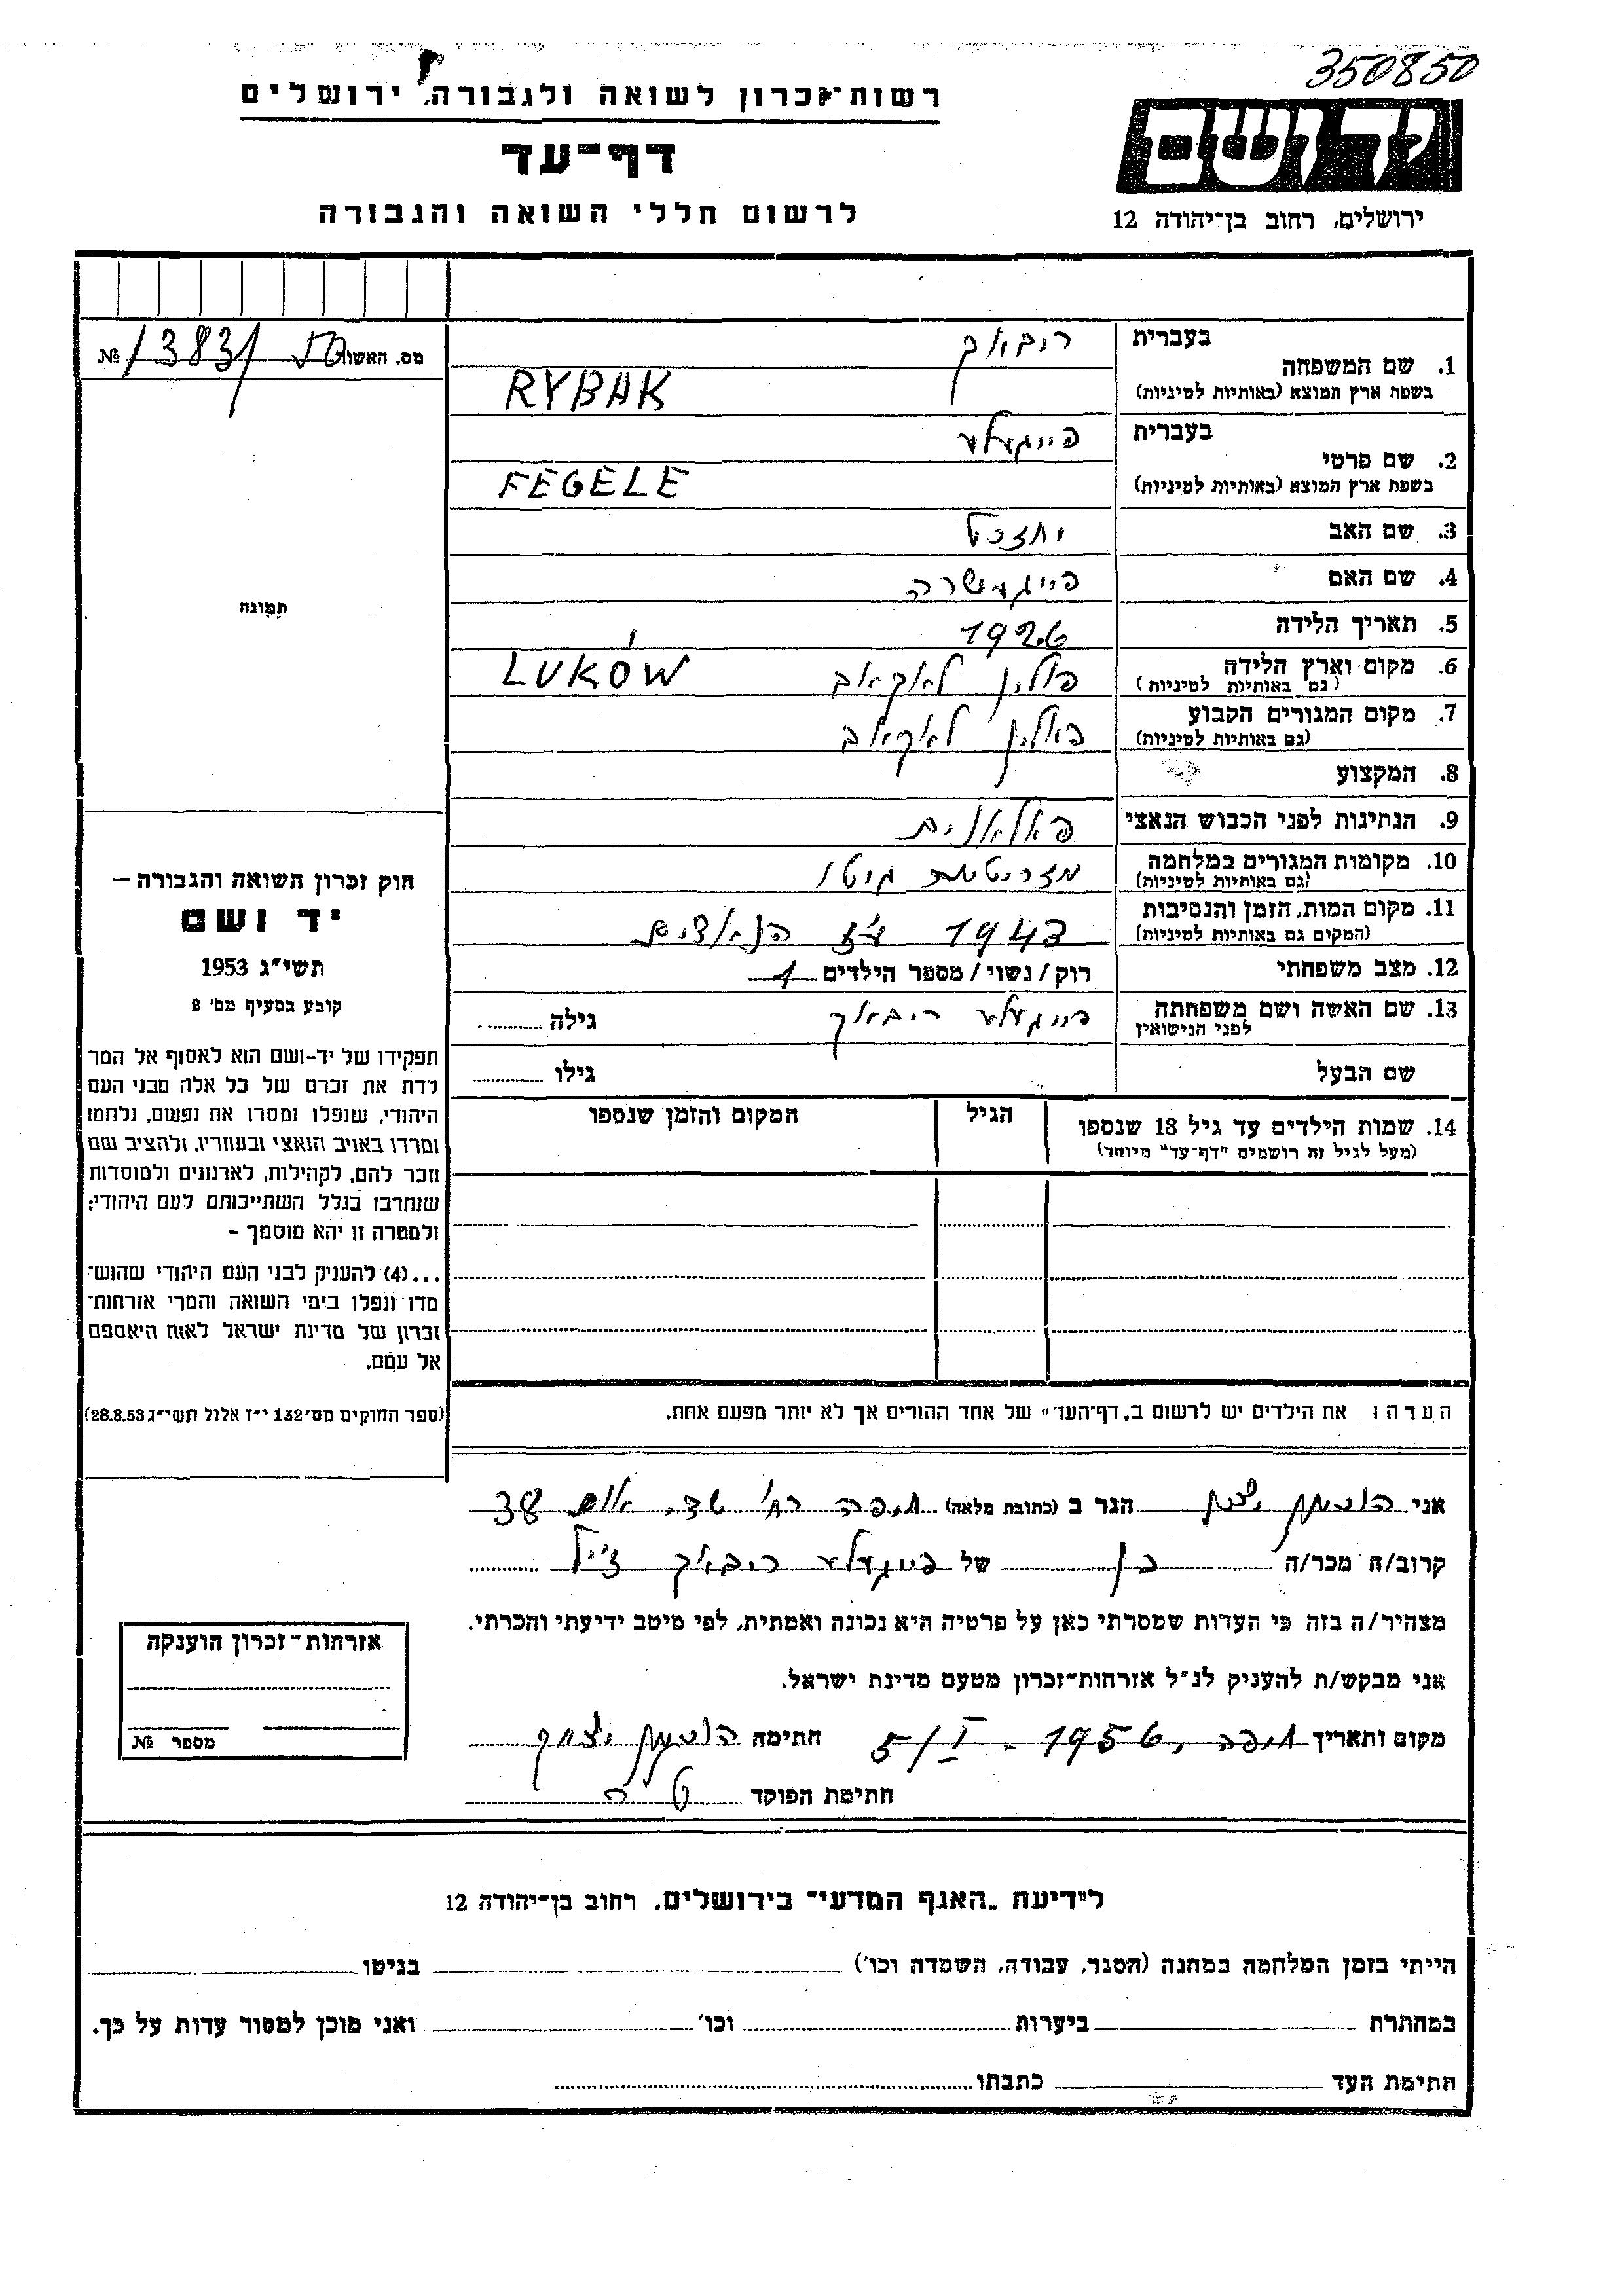 350850
רשות־זכרון לשואה ולגבורה, ירושלים
דף־עד
לרשום חללי השואה והגבורה
יד ושם
ירושלים, רחוב בן־יהודה 12
מס. האשה №
1. שם המשפחה
בעברית ריבאק
בשפת ארץ המוצא (באותיות לטיניות) RYBAK
2. שם פרטי
בעברית פייגעלע
בשפת ארץ המוצא (באותיות לטיניות) FEGELE
3. שם האב יחזכל
4. שם האם
5. תאריך הלידה 1926
6. מקום וארץ הלידה פולין לאקאב LUKÓW
(גם באותיות לטיניות)
7. מקום המגורים הקבוע פאלין לאקאב
(גם באותיות לטיניות)
8. המקצוע
9. הנתינות לפני הכבוש הנאצי
10. מקומות המגורים במלחמה גיטו
(גם באותיות לטיניות)
11. מקום המות, הזמן והנסיבות 1943 הנאצים
(המקום גם באותיות לטיניות)
12. מצב משפחתי רוק/נשוי/מספר הילדים 1
13. שם האשה ושם משפחתה פייגעלע ריבאק גילה
לפני הנישואין
שם הבעל גילו
14. שמות הילדים עד גיל 18 שנספו הגיל המקום והזמן שנספו
(מעל לגיל זה רושמים "דף־עד" מיוחד)
הערה: את הילדים יש לרשום ב„דף־העד" של אחד ההורים אך לא יותר מפעם אחת.
תמונה
חוק זכרון השואה והגבורה –
יד ושם
תשי"ג 1953
קובע בסעיף מס' 8
תפקידו של יד-ושם הוא לאסוף אל המו־
לדת את זכרם של כל אלה מבני העם
היהודי, שנפלו ומסרו את נפשם, נלחמו
ומרדו באויב הנאצי ובעוזריו, ולהציב שם
וזכר להם, לקהילות, לארגונים ולמוסדות
שנחרבו בגלל השתייכותם לעם היהודי;
ולמטרה זו יהא מוסמך –
...(4) להעניק לבני העם היהודי שהוש־
מדו ונפלו בימי השואה והמרי אזרחות־
זכרון של מדינת ישראל לאות היאספם
אל עמם.
(ספר החוקים מס' 132 י"ז אלול תשי"ג 28.8.53)
אני יצחק הגר ב (כתובת מלאה) חיפה רח'
קרוב/ה מכר/ה בן של פייגעלע ריבאק ז"ל
מצהיר/ה בזה כי העדות שמסרתי כאן על פרטיה היא נכונה ואמתית, לפי מיטב ידיעתי והכרתי.
אני מבקש/ת להעניק לנ"ל אזרחות־זכרון מטעם מדינת ישראל.
מקום ותאריך חיפה, 5/I - 1956 חתימה יצחק
חתימת הפוקד
אזרחות־זכרון הוענקה
מספר №
לידיעת „האגף המדעי" בירושלים, רחוב בן־יהודה 12
הייתי בזמן המלחמה במחנה (הסגר, עבודה, השמדה וכו') בגיטו
במחתרת ביערות וכו' ואני מוכן למסור עדות על כך.
חתימת העד כתבתו